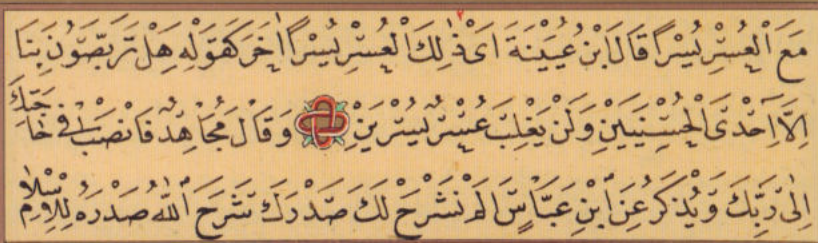 مَعَ الْعُسْرِ يُسْرًا قَالَ ابْنُ عُيَيْنَةَ اَىْ ذٰلِكَ الْعُسْرِ يُسْرًا اٰخَرَ كَقَوْلِهِ هَلْ تَرَبَّصُونَ بِنَا
اِلَّا اِحْدَى الْحُسْنَيَيْنِ وَلَنْ يَغْلِبَ عُسْرٌ يُسْرَيْنِ وَقَالَ مُجَاهِدٌ فَانْصَبْ فِى حَاجَتِكَ
اِلٰى رَبِّكَ وَيُذْكَرُ عَنِ ابْنِ عَبَّاسٍ اَلَمْ نَشْرَحْ لَكَ صَدْرَكَ شَرَحَ اللّٰهُ صَدْرَهُ لِلْاِسْلَامِ